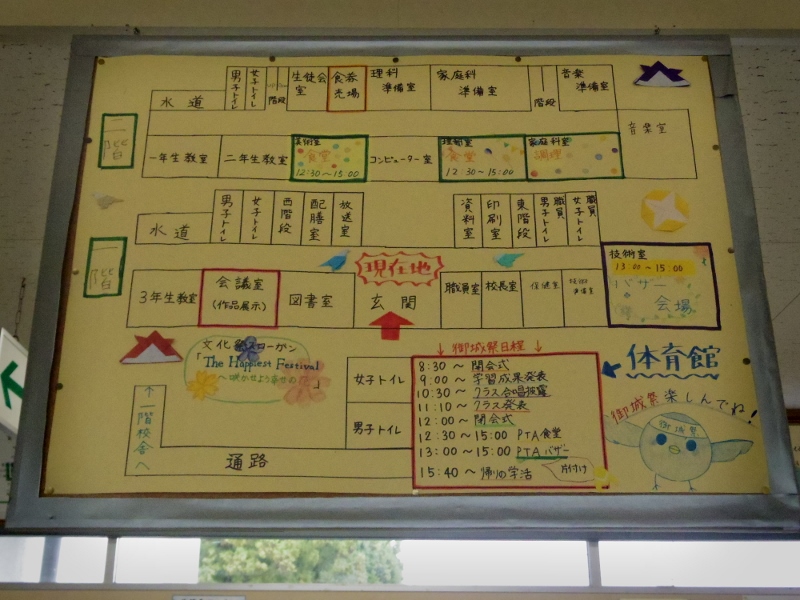 二階
男子トイレ
女子トイレ
階段
生徒会室
食券売場
理科準備室
家庭科準備室
階段
音楽準備室
水道
音楽室
一年生教室
二年生教室
美術室
食堂
12:30〜15:00
コンピューター室
理科室
食堂
12:30〜15:00
家庭科室
調理
一階
水道
男子トイレ
女子トイレ
西階段
配膳室
放送室
資料室
印刷室
東階段
職員男子トイレ
職員女子トイレ
3年生教室
会議室
(作品展示)
図書室
現在地
玄関
職員室
校長室
保健室
技術室
13:00〜15:00
バザー
会場
文化祭スローガン
「The Happiest Festival
女子トイレ
男子トイレ
↑一階校舎へ
通路
↓御城祭日程↓
8:30〜開会式
9:00〜学習成果発表
10:30〜クラス合唱披露
11:10〜クラス発表
12:00〜閉会式
12:30〜15:00 PTA食堂
13:00〜15:00 PTAバザー
15:40〜帰りの学活
片付け
体育館
御城祭楽しんでね!
御城祭